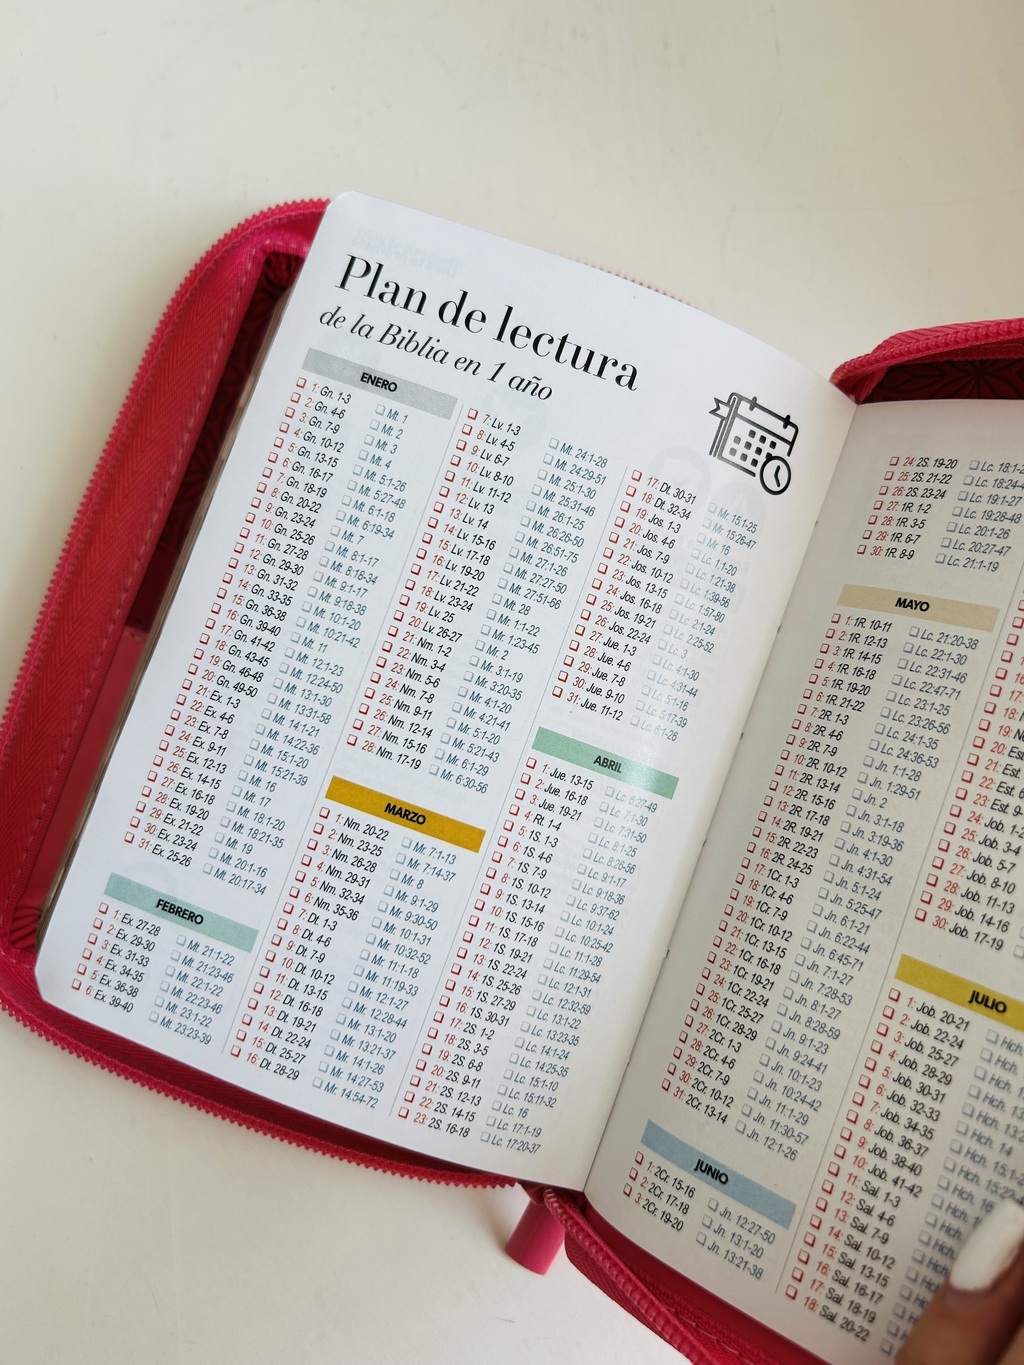 Plan de lectura
de la Biblia en 1 año
ENERO
1: Gn. 1-3 Mt. 1
2: Gn. 4-6 Mt. 2
3: Gn. 7-9 Mt. 3
4: Gn. 10-12 Mt. 4
5: Gn. 13-15 Mt. 5:1-26
6: Gn. 16-17 Mt. 5:27-48
7: Gn. 18-19 Mt. 6:1-18
8: Gn. 20-22 Mt. 6:19-34
9: Gn. 23-24 Mt. 7
10: Gn. 25-26 Mt. 8:1-17
11: Gn. 27-28 Mt. 8:18-34
12: Gn. 29-30 Mt. 9:1-17
13: Gn. 31-32 Mt. 9:18-38
14: Gn. 33-35 Mt. 10:1-20
15: Gn. 36-38 Mt. 10:21-42
16: Gn. 39-40 Mt. 11
17: Gn. 41-42 Mt. 12:1-23
18: Gn. 43-45 Mt. 12:24-50
19: Gn. 46-48 Mt. 13:1-30
20: Gn. 49-50 Mt. 13:31-58
21: Ex. 1-3 Mt. 14:1-21
22: Ex. 4-6 Mt. 14:22-36
23: Ex. 7-8 Mt. 15:1-20
24: Ex. 9-11 Mt. 15:21-39
25: Ex. 12-13 Mt. 16
26: Ex. 14-15 Mt. 17
27: Ex. 16-18 Mt. 18:1-20
28: Ex. 19-20 Mt. 18:21-35
29: Ex. 21-22 Mt. 19
30: Ex. 23-24 Mt. 20:1-16
31: Ex. 25-26 Mt. 20:17-34
FEBRERO
1: Ex. 27-28 Mt. 21:1-22
2: Ex. 29-30 Mt. 21:23-46
3: Ex. 31-33 Mt. 22:1-22
4: Ex. 34-35 Mt. 22:23-46
5: Ex. 36-38 Mt. 23:1-22
6: Ex. 39-40 Mt. 23:23-39
7: Lv. 1-3 Mt. 24:1-28
8: Lv. 4-5 Mt. 24:29-51
9: Lv. 6-7 Mt. 25:1-30
10: Lv. 8-10 Mt. 25:31-46
11: Lv. 11-12 Mt. 26:1-25
12: Lv. 13 Mt. 26:26-50
13: Lv. 14 Mt. 26:51-75
14: Lv. 15-16 Mt. 27:1-26
15: Lv. 17-18 Mt. 27:27-50
16: Lv. 19-20 Mt. 27:51-66
17: Lv. 21-22 Mt. 28
18: Lv. 23-24 Mr. 1:1-22
19: Lv. 25 Mr. 1:23-45
20: Lv. 26-27 Mr. 2
21: Nm. 1-2 Mr. 3:1-19
22: Nm. 3-4 Mr. 3:20-35
23: Nm. 5-6 Mr. 4:1-20
24: Nm. 7-8 Mr. 4:21-41
25: Nm. 9-11 Mr. 5:1-20
26: Nm. 12-14 Mr. 5:21-43
27: Nm. 15-16 Mr. 6:1-29
28: Nm. 17-19 Mr. 6:30-56
MARZO
1: Nm. 20-22 Mr. 7:1-13
2: Nm. 23-25 Mr. 7:14-37
3: Nm. 26-28 Mr. 8
4: Nm. 29-31 Mr. 9:1-29
5: Nm. 32-34 Mr. 9:30-50
6: Nm. 35-36 Mr. 10:1-31
7: Dt. 1-3 Mr. 10:32-52
8: Dt. 4-6 Mr. 11:1-18
9: Dt. 7-9 Mr. 11:19-33
10: Dt. 10-12 Mr. 12:1-27
11: Dt. 13-15 Mr. 12:28-44
12: Dt. 16-18 Mr. 13:1-20
13: Dt. 19-21 Mr. 13:21-37
14: Dt. 22-24 Mr. 14:1-26
15: Dt. 25-27 Mr. 14:27-53
16: Dt. 28-29 Mr. 14:54-72
17: Dt. 30-31 Mr. 15:1-25
18: Dt. 32-34 Mr. 15:26-47
19: Jos. 1-3 Mr. 16
20: Jos. 4-6 Lc. 1:1-20
21: Jos. 7-9 Lc. 1:21-38
22: Jos. 10-12 Lc. 1:39-56
23: Jos. 13-15 Lc. 1:57-80
24: Jos. 16-18 Lc. 2:1-24
25: Jos. 19-21 Lc. 2:25-52
26: Jos. 22-24 Lc. 3
27: Jue. 1-3 Lc. 4:1-30
28: Jue. 4-6 Lc. 4:31-44
29: Jue. 7-8 Lc. 5:1-16
30: Jue. 9-10 Lc. 5:17-39
31: Jue. 11-12 Lc. 6:1-26
ABRIL
1: Jue. 13-15 Lc. 6:27-49
2: Jue. 16-18 Lc. 7:1-30
3: Jue. 19-21 Lc. 7:31-50
4: Rt. 1-4 Lc. 8:1-25
5: 1S. 1-3 Lc. 8:26-56
6: 1S. 4-6 Lc. 9:1-17
7: 1S. 7-9 Lc. 9:18-36
8: 1S. 10-12 Lc. 9:37-62
9: 1S. 13-14 Lc. 10:1-24
10: 1S. 15-16 Lc. 10:25-42
11: 1S. 17-18 Lc. 11:1-28
12: 1S. 19-21 Lc. 11:29-54
13: 1S. 22-24 Lc. 12:1-31
14: 1S. 25-26 Lc. 12:32-59
15: 1S. 27-29 Lc. 13:1-22
16: 1S. 30-31 Lc. 13:23-35
17: 2S. 1-2 Lc. 14:1-24
18: 2S. 3-5 Lc. 14:25-35
19: 2S. 6-8 Lc. 15:1-10
20: 2S. 9-11 Lc. 15:11-32
21: 2S. 12-13 Lc. 16
22: 2S. 14-15 Lc. 17:1-19
23: 2S. 16-18 Lc. 17:20-37
24: 2S. 19-20 Lc. 18:1-2
25: 2S. 21-22 Lc. 18:24-4
26: 2S. 23-24 Lc. 19:1-27
27: 1R. 1-2 Lc. 19:28-48
28: 1R. 3-5 Lc. 20:1-26
29: 1R. 6-7 Lc. 20:27-47
30: 1R. 8-9 Lc. 21:1-19
MAYO
1: 1R. 10-11 Lc. 21:20-38
2: 1R. 12-13 Lc. 22:1-30
3: 1R. 14-15 Lc. 22:31-46
4: 1R. 16-18 Lc. 22:47-71
5: 1R. 19-20 Lc. 23:1-25
6: 1R. 21-22 Lc. 23:26-56
7: 2R. 1-3 Lc. 24:1-35
8: 2R. 4-6 Lc. 24:36-53
9: 2R. 7-9 Jn. 1:1-28
10: 2R. 10-12 Jn. 1:29-51
11: 2R. 13-14 Jn. 2
12: 2R. 15-16 Jn. 3:1-18
13: 2R. 17-18 Jn. 3:19-36
14: 2R. 19-21 Jn. 4:1-30
15: 2R. 22-23 Jn. 4:31-54
16: 2R. 24-25 Jn. 5:1-24
17: 1Cr. 1-3 Jn. 5:25-47
18: 1Cr. 4-6 Jn. 6:1-21
19: 1Cr. 7-9 Jn. 6:22-44
20: 1Cr. 10-12 Jn. 6:45-71
21: 1Cr. 13-15 Jn. 7:1-27
22: 1Cr. 16-18 Jn. 7:28-53
23: 1Cr. 19-21 Jn. 8:1-27
24: 1Cr. 22-24 Jn. 8:28-59
25: 1Cr. 25-27 Jn. 9:1-23
26: 1Cr. 28-29 Jn. 9:24-41
27: 2Cr. 1-3 Jn. 10:1-23
28: 2Cr. 4-6 Jn. 10:24-42
29: 2Cr. 7-9 Jn. 11:1-29
30: 2Cr. 10-12 Jn. 11:30-57
31: 2Cr. 13-14 Jn. 12:1-26
JUNIO
1: 2Cr. 15-16 Jn. 12:27-50
2: 2Cr. 17-18 Jn. 13:1-20
3: 2Cr. 19-20 Jn. 13:21-38
20: Est
21: Est.
22: Est. 6
23: Est. 9-
24: Job. 1-2
25: Job. 3-4
26: Job. 5-7
27: Job. 8-10
28: Job. 11-13
29: Job. 14-16
30: Job. 17-19
JULIO
1: Job. 20-21 Hch.
2: Job. 22-24 Hch.
3: Job. 25-27 Hch.
4: Job. 28-29 Hch.
5: Job. 30-31 Hch.
6: Job. 32-33 Hch.
7: Job. 34-35 Hch.
8: Job. 36-37 Hch. 14
9: Job. 38-40 Hch. 15:1-2
10: Job. 41-42 Hch. 15:22-
11: Sal. 1-3 Hch. 16
12: Sal. 4-6 Hch.
13: Sal. 7-9 Hch.
14: Sal. 10-12
15: Sal. 13-15
16: Sal. 16-17
17: Sal. 18-19
18: Sal. 20-22